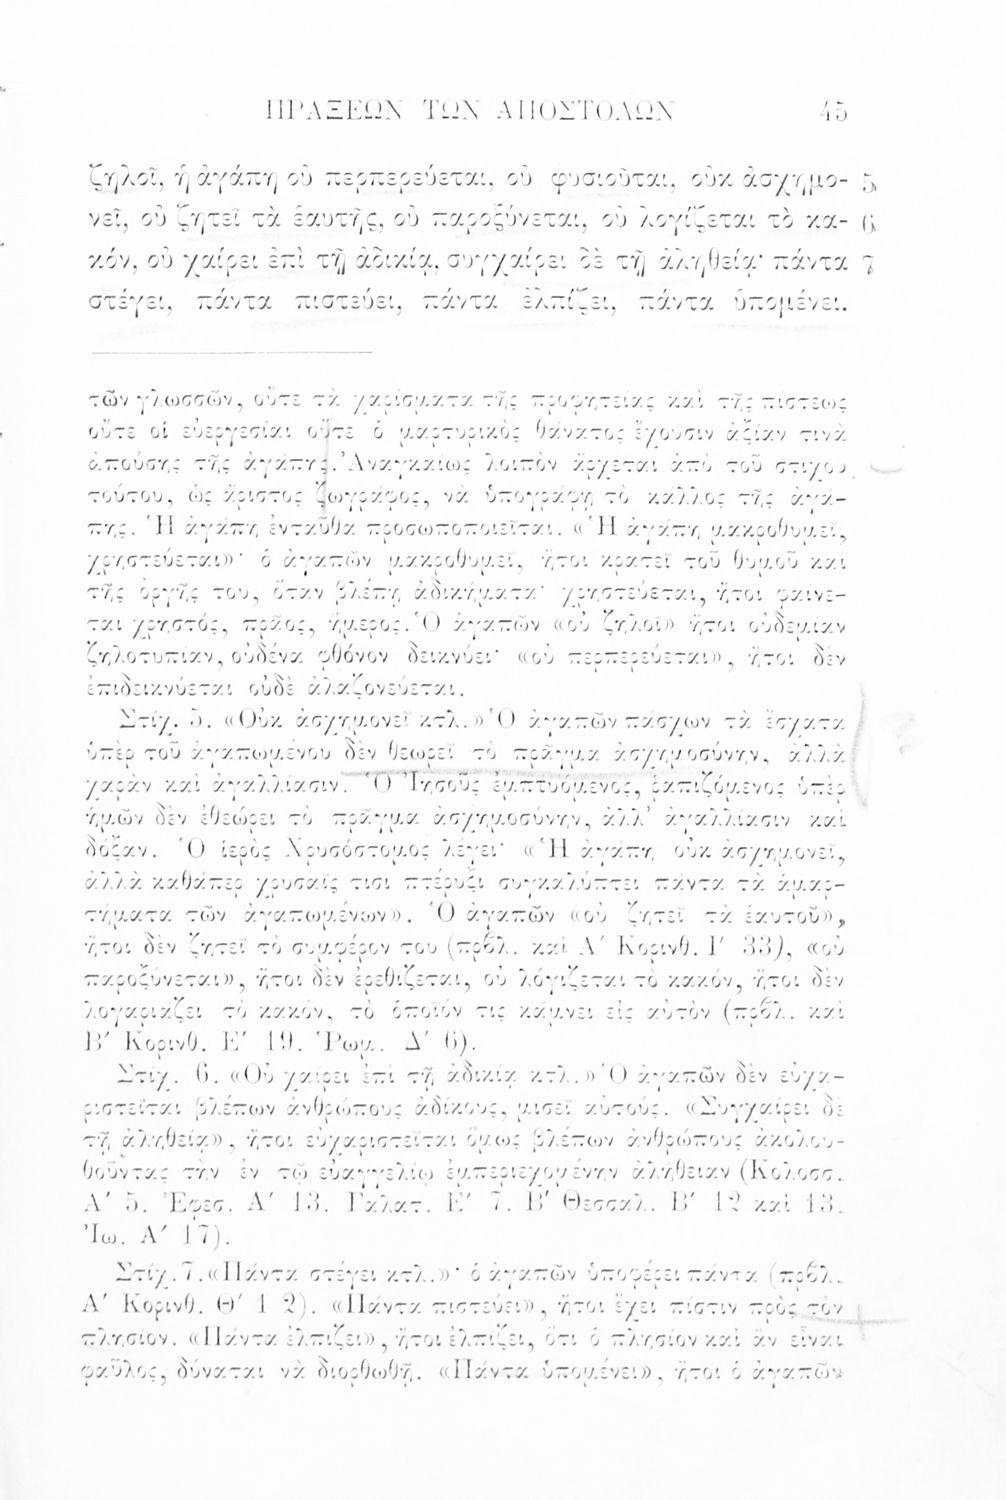 ΠΡΑΞΕΩΝ ΤΩΝ ΑΠΟΣΤΟΛΩΝ 45
ζηλοῖ, ἡ ἀγάπη οὐ περπερεύεται, οὐ φυσιοῦται, οὐκ ἀσχημο- 5
νεῖ, οὐ ζητεῖ τὰ ἑαυτῆς, οὐ παροξύνεται, οὐ λογίζεται τὸ κα- 6
κόν, οὐ χαίρει ἐπὶ τῇ ἀδικίᾳ, συγχαίρει δὲ τῇ ἀληθείᾳ· πάντα 7
στέγει, πάντα πιστεύει, πάντα ἐλπίζει, πάντα ὑπομένει.
τῶν γλωσσῶν, οὔτε τὰ χαρίσματα τῆς προφητείας καὶ τῆς πίστεως
οὔτε οἱ εὐεργεσίαι οὔτε ὁ μαρτυρικὸς θάνατος ἔχουσιν ἀξίαν τινὰ
ἀπούσης τῆς ἀγάπης. Ἀναγκαίως λοιπὸν ἄρχεται ἀπὸ τοῦ στίχου
τούτου, ὡς ἄριστος ζωγράφος, νὰ ὑπογράφῃ τὸ κάλλος τῆς ἀγά-
πης. Ἡ ἀγάπη ἐνταῦθα προσωποποιεῖται. «Ἡ ἀγάπη μακροθυμεῖ,
χρηστεύεται»· ὁ ἀγαπῶν μακροθυμεῖ, ἤτοι κρατεῖ τοῦ θυμοῦ καὶ
τῆς ὀργῆς του, ὅταν βλέπῃ ἀδικήματα· χρηστεύεται, ἤτοι φαίνε-
ται χρηστός, πρᾶος, ἥμερος. Ὁ ἀγαπῶν «οὐ ζηλοῖ» ἤτοι οὐδεμίαν
ζηλοτυπίαν, οὐδένα φθόνον δεικνύει· «οὐ περπερεύεται», ἤτοι δὲν
ἐπιδεικνύεται οὐδὲ ἀλαζονεύεται.
Στίχ. 5. «Οὐκ ἀσχημονεῖ κτλ.» Ὁ ἀγαπῶν πάσχων τὰ ἔσχατα
ὑπὲρ τοῦ ἀγαπωμένου δὲν θεωρεῖ τὸ πρᾶγμα ἀσχημοσύνην, ἀλλὰ
χαρὰν καὶ ἀγαλλίασιν. Ὁ Ἰησοῦς ἐμπτυόμενος, ῥαπιζόμενος ὑπὲρ
ἡμῶν δὲν ἐθεώρει τὸ πρᾶγμα ἀσχημοσύνην, ἀλλ' ἀγαλλίασιν καὶ
δόξαν. Ὁ ἱερὸς Χρυσόστομος λέγει· «Ἡ ἀγάπη οὐκ ἀσχημονεῖ,
ἀλλὰ καθάπερ χρυσαῖς τισι πτέρυξι συγκαλύπτει πάντα τὰ ἁμαρ-
τήματα τῶν ἀγαπωμένων». Ὁ ἀγαπῶν «οὐ ζητεῖ τὰ ἑαυτοῦ»,
ἤτοι δὲν ζητεῖ τὸ συμφέρον του (πρβλ. καὶ Α' Κορινθ. Ι' 33), «οὐ
παροξύνεται», ἤτοι δὲν ἐρεθίζεται, οὐ λόγιζεται τὸ κακόν, ἤτοι δὲν
λογαριάζει τὸ κακόν, τὸ ὁποῖόν τις κάμνει εἰς αὐτὸν (πρβλ. καὶ
Β' Κορινθ. Ε' 19. Ῥωμ. Δ' 6).
Στίχ. 6. «Οὐ χαίρει ἐπὶ τῇ ἀδικίᾳ κτλ.» Ὁ ἀγαπῶν δὲν εὐχα-
ριστεῖται βλέπων ἀνθρώπους ἀδίκους, μισεῖ αὐτούς. «Συγχαίρει δὲ
τῇ ἀληθείᾳ», ἤτοι εὐχαριστεῖται ὅμως βλέπων ἀνθρώπους ἀκολου-
θοῦντας τὴν ἐν τῷ εὐαγγελίῳ ἐμπεριεχομένην ἀλήθειαν (Κολοσσ.
Α' 5. Ἐφεσ. Α' 13. Γαλατ. Ε' 7. Β' Θεσσαλ. Β' 12 καὶ 13.
Ἰω. Α' 17).
Στίχ. 7. «Πάντα στέγει κτλ.»· ὁ ἀγαπῶν ὑποφέρει πάντα (πρβλ.
Α' Κορινθ. Θ' 12). «Πάντα πιστεύει», ἤτοι ἔχει πίστιν πρὸς τὸν
πλησίον. «Πάντα ἐλπίζει», ἤτοι ἐλπίζει, ὅτι ὁ πλησίον καὶ ἂν εἶναι
φαῦλος, δύναται νὰ διορθωθῇ. «Πάντα ὑπομένει», ἤτοι ὁ ἀγαπῶν